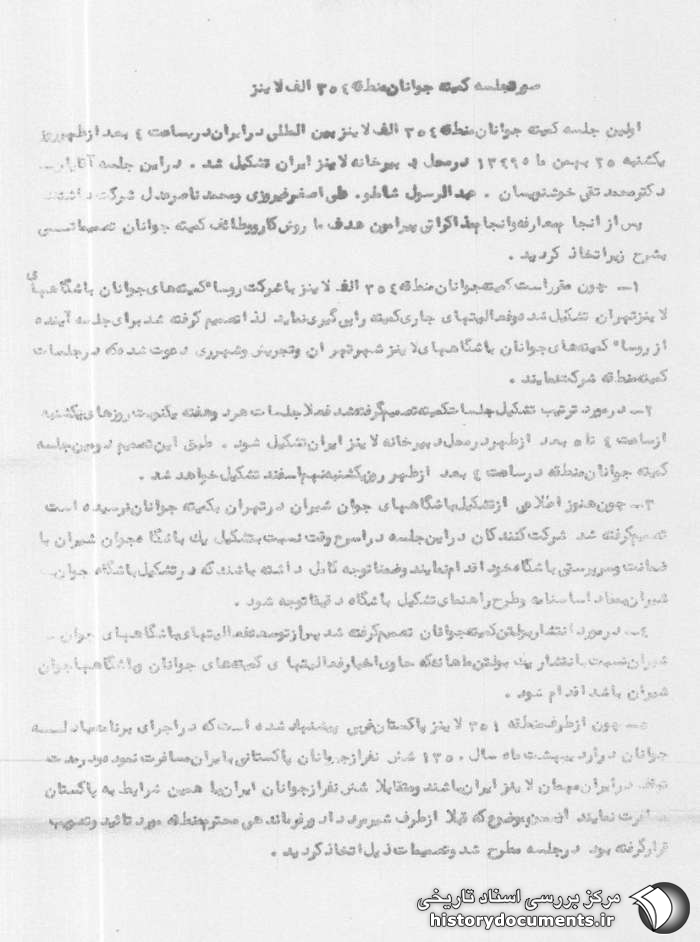 صورتجلسه کمیته جوانان منطقه ۳۵٤ الف لاینز
اولین جلسه کمیته جوانان منطقه ۳۵٤ الف لاینز بین المللی در ایران در ساعت ٤ بعد از ظهر روز
یکشنبه ۲۵ بهمن ماه ۱۳٤۹ در محل دبیرخانه لاینز ایران تشکیل شد . در این جلسه آقایان ـ
دکتر محمد تقی خوشنویسان . عبدالرسول شاطر. علی اصغر فیروزی و محمد ناصر عدل شرکت داشتند
پس از انجام معارفه و انجام مذاکراتی پیرامون هدف ها روش کار و وظائف کمیته جوانان تصمیماتی
بشرح زیر اتخاذ گردید .
۱ـ چون مقرر است کمیته جوانان منطقه ۳۵٤ الف لاینز با شرکت روساء کمیته های جوانان باشگاههای
لاینز تهران تشکیل شده و فعالیتهای جاری کمیته را پی گیری نماید لذا تصمیم گرفته شد برای جلسه آینده
از روساء کمیته های جوانان باشگاههای لاینز شهر تهران و تجریش و شهرری دعوت شود که در جلسات
کمیته منطقه شرکت نمایند .
۲ـ در مورد ترتیب تشکیل جلسات کمیته تصمیم گرفته شد فعلا جلسات هر دو هفته یکنوبت روزهای یکشنبه
از ساعت ٤ تا ۵ بعد از ظهر در محل دبیرخانه لاینز ایران تشکیل شود . طبق این تصمیم دومین جلسه
کمیته جوانان منطقه در ساعت ٤ بعد از ظهر روز یکشنبه نهم اسفند تشکیل خواهد شد .
۳ـ چون هنوز اطلاعی از تشکیل باشگاههای جوان شیران در تهران بکمیته جوانان نرسیده است
تصمیم گرفته شد شرکت کنندگان در این جلسه در اسرع وقت نسبت بتشکیل یک باشگاه جوان شیران با
ضمانت و سرپرستی باشگاه خود اقدام نمایند و ضمنا توجه کامل داشته باشند که در تشکیل باشگاه جوان ـ
شیران بمفاد اساسنامه و طرح راهنمای تشکیل باشگاه دقیقا توجه شود .
٤ـ در مورد انتشار بولتن کمیته جوانان تصمیم گرفته شد پس از توسعه فعالیتهای باشگاههای جوان ـ
شیران نسبت بانتشار یک بولتن ماهانه که حاوی اخبار فعالیتهای کمیته های جوانان و باشگاههای جوان
شیران باشد اقدام شود .
۵ـ چون از طرف منطقه ۳۵۱ لاینز پاکستان غربی پیشنهاد شده است که در اجرای برنامه مبادلسه
جوانان در اردیبهشت ماه سال ۱۳۵۰ شش نفر از جوانان پاکستانی بایران مسافرت نموده و در مدت
در ایران میهمان لاینز ایران باشند و متقابلا شش نفر از جوانان ایران با همین شرایط به پاکستان
مسافرت نمایند این موضوع که قبلا از طرف شیرمرد داور فرماندهی محترم منطقه مورد تائید و تصویب
قرار گرفته بود در جلسه مطرح شد و تصمیمات ذیل اتخاذ گردید .
مرکز بررسی اسناد تاریخی
historydocuments.ir